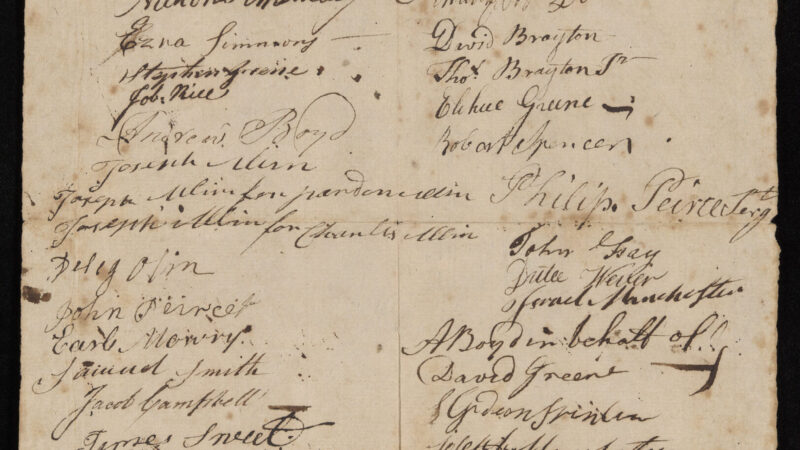 Ezra Simmons
Stephen Greene
Job Rice
Andrew Boyd
Joseph Allin
Joseph Allin for pardon Allin
Joseph Allin for Charles Allin
Peleg Olin
John Peirce
Earl Mowry
Samuel Smith
Jacob Campbell
James Sweet
David Brayton
Thos. Brayton Jr
Elihue Greene
Robert Spencer
Philip Peirce Sergt
John Gay
Dutee Wever
Israel Manchester
A Boyd in behalf of
David Greene
Gideon